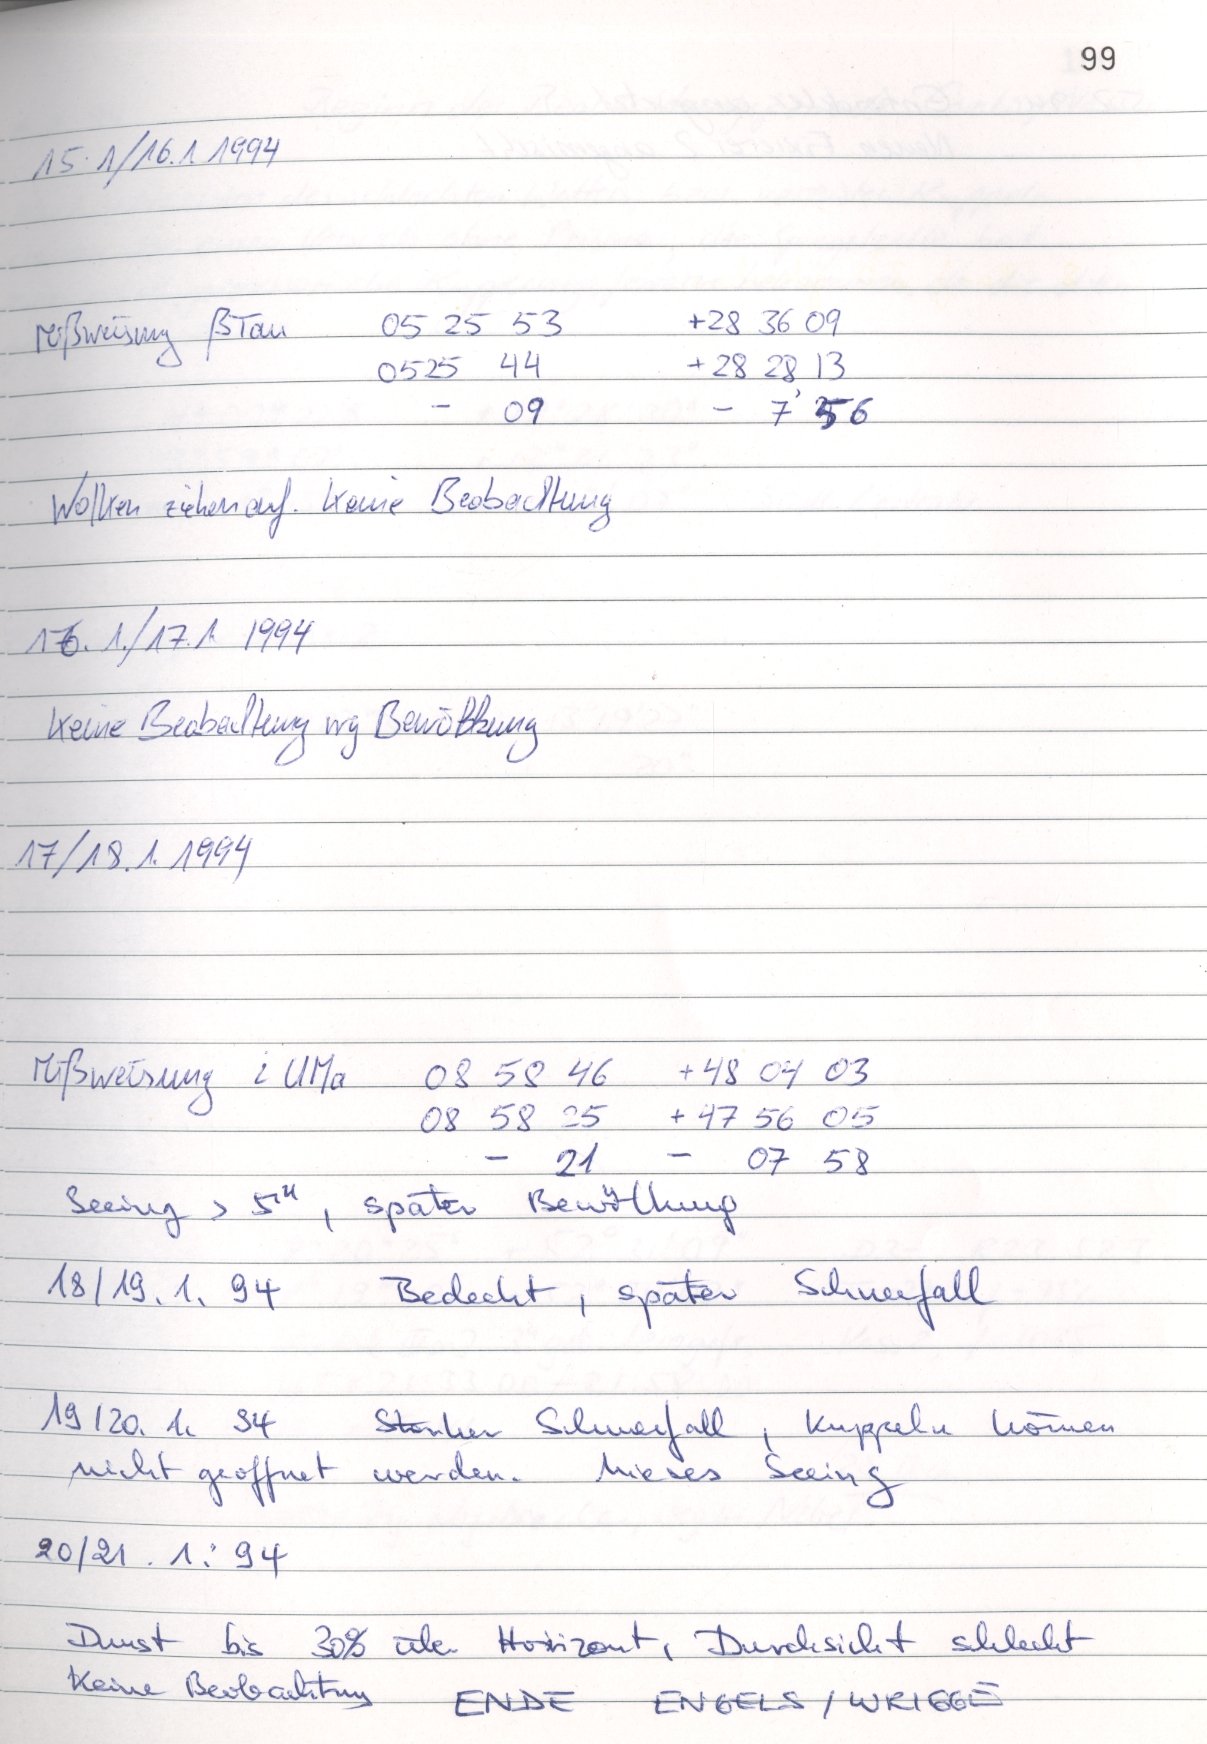 99
15.1/16.1 1994
Mißweisung βTau 05 25 53 +28 36 09
0525 44 +28 28 13
- 09 - 7' 56
Wolken ziehen auf. Keine Beobachtung
16. 1./17.1. 1994
Keine Beobachtung wg Bewölkung
17/18.1. 1994
Mißweisung i UMa 08 58 46 +48 04 03
08 58 25 +47 56 05
- 21 - 07 58
Seeing > 5", später Bewölkung
18/19. 1. 94 Bedeckt, später Schneefall
19/20. 1. 94 Starker Schneefall, Kuppeln können
nicht geöffnet werden. Mieses Seeing
20/21. 1. 94
Dunst bis 30% über Horizont, Durchsicht schlecht
Keine Beobachtung ENDE ENGELS / WRIGGE